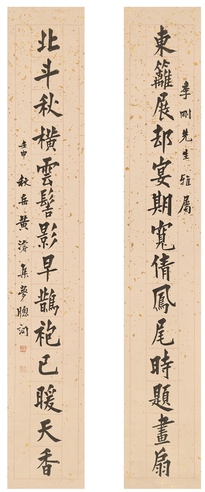 東籬展却宴期寬倩鳳尾時題畫扇
李剛先生雅屬
北斗秋橫雲髻影早鵲袍已暖天香
壬申
秋岳黃濬集夢牕詞